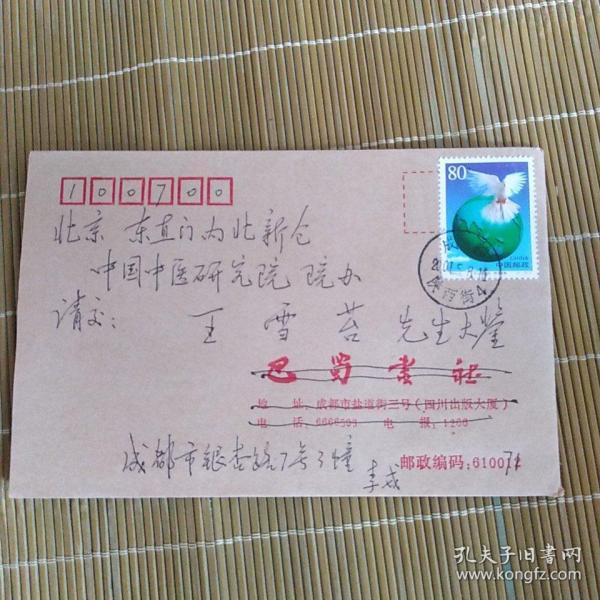 100700
80
中国邮政
北京 东直门内北新仓
中国中医研究院 院办
请交: 王雪苔 先生大鉴
巴蜀书社
地 址:成都市盐道街三号(四川出版大厦)
电 话:6666503 电 报:1200
成都市银杏路7号3幢 李成
邮政编码:61007
孔夫子旧书网
www.kongfz.com